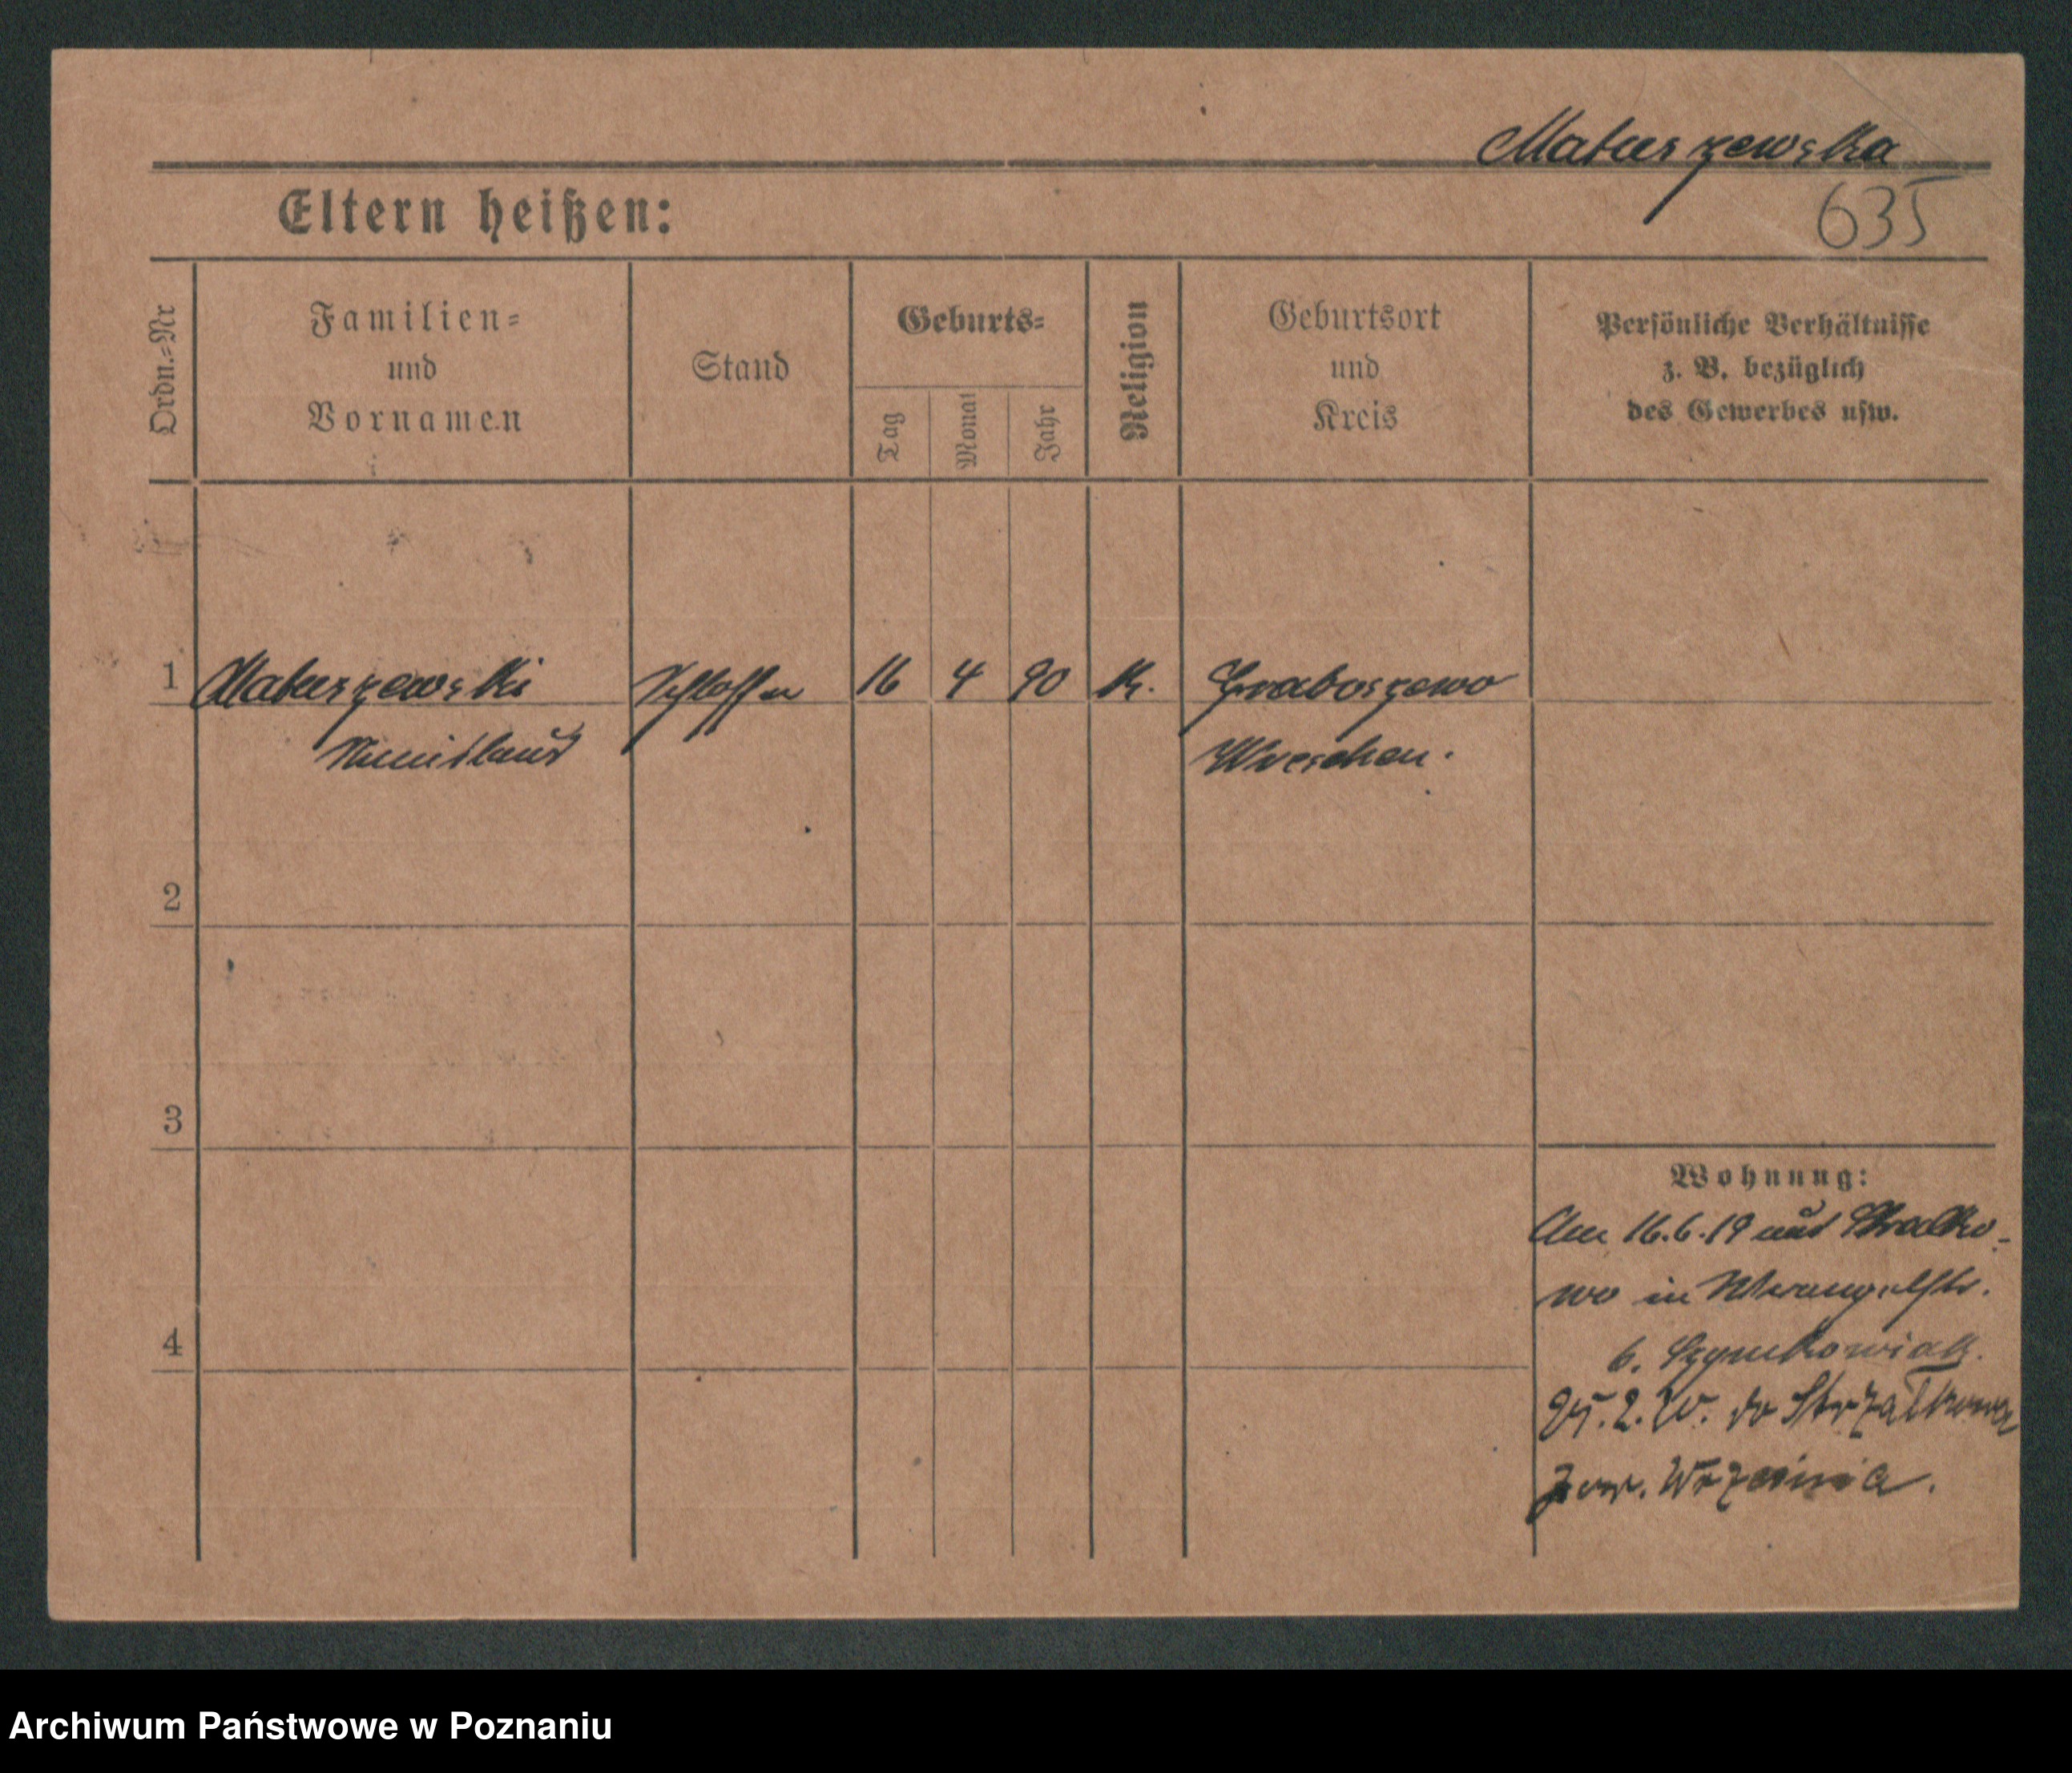 Matuszewska
635
Eltern heißen:
Ordn.-Nr
Familien-
und
Vornamen
Stand
Geburts-
Tag
Monat
Jahr
Religion
Geburtsort
und
Kreis
Persönliche Verhältnisse
z. B. bezüglich
des Gewerbes usw.
1 Matuszewski Schlosser 16 4 90 k. Graboszewo
Wreschen.
2
3
4
Wohnung:
Am 16.6.19 aus Stralko-
wo in Wrangelstr.
6. Szymkowiak.
25.2.20. do Strzałkowa
pow. Września.